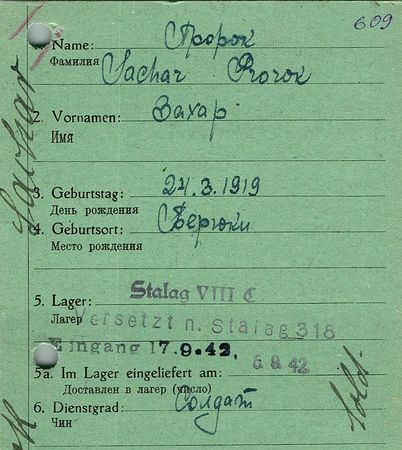 609
1. Name: Пророк
Фамилия Sachar Prorok
2. Vornamen: Захар
Имя
Sachar
3. Geburtstag: 24.3.1919
День рождения
4. Geburtsort:
Место рождения
5. Lager: Stalag VIII C
Лагер Versetzt n. Stalag 318
Eingang 17.9.42,
5a. Im Lager eingeliefert am: 6 9 42
Доставлен в лагер (число)
6. Dienstgrad: Солдат
Чин
Sold.